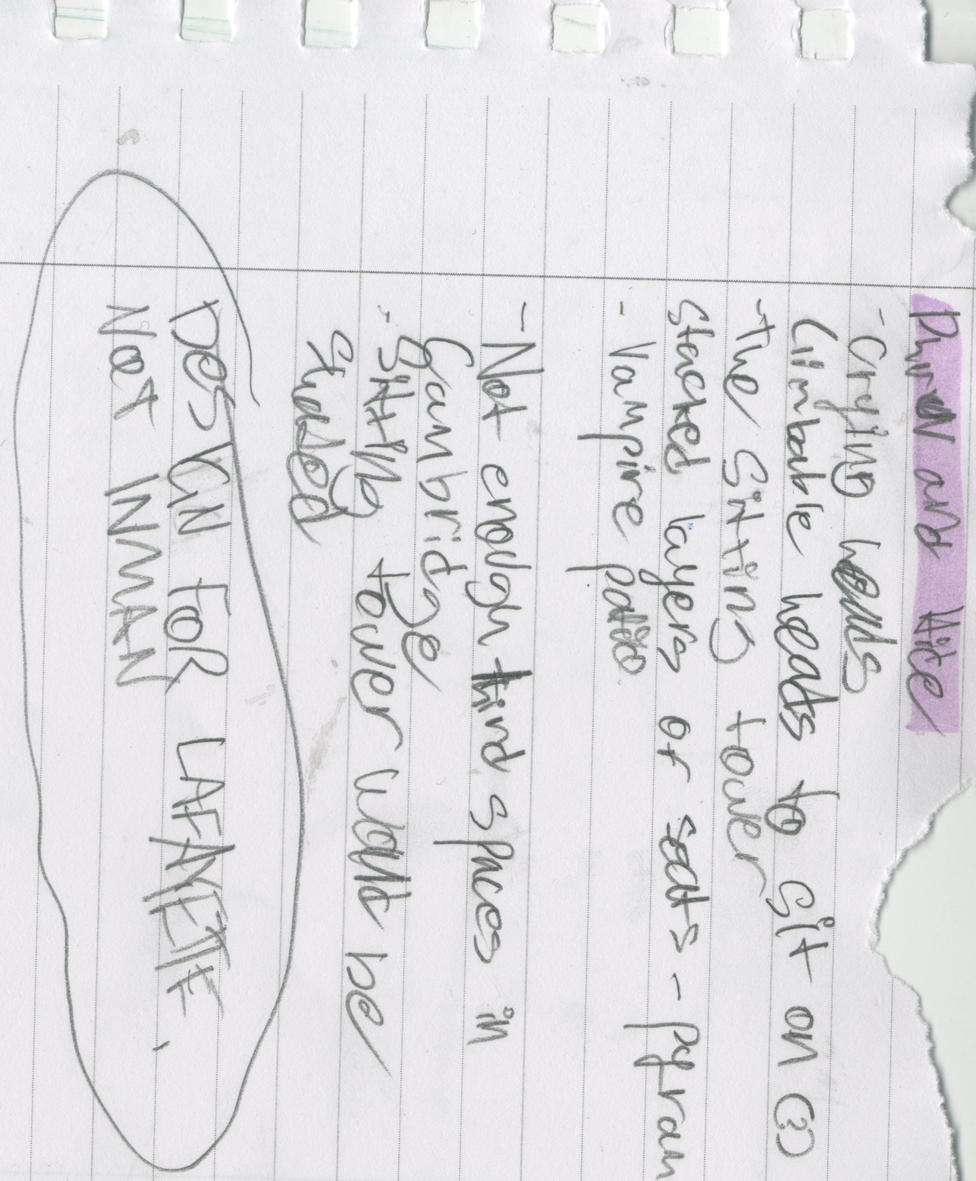 and
- Crying heads
Climbable heads to sit on (?)
- The sitting tower
Stacked layers of seats - pyram
- Vampire patio
- Not enough third spaces in
Cambridge
- Sitting tower would be
Shaded
DESIGN FOR LAFAYETTE,
NOT INMAN